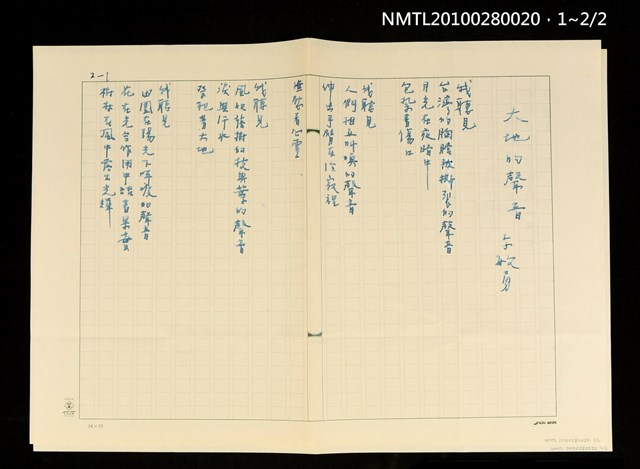 NMTL20100280020，1~2/2
2-1
大地的聲音 李敏勇
我聽見
台灣的胸膛被撕裂的聲音
月光在夜暗中
包紮著傷口
我聽見
人們相互叫喚的聲音
伸出手臂在冷寂裡
溫熱著心靈
我聽見
風吹拂樹的枝與葉的聲音
淚與汗水
緊抱著大地
我聽見
田園在陽光下呼吸的聲音
花在光合作用中語言果實
樹林在風中露出光輝
24×25